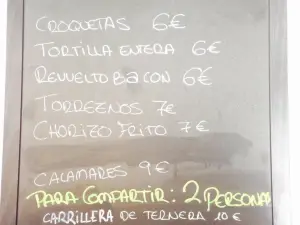 CROQUETAS 6€
TORTILLA ENTERA 6€
REVUELTO BACON 6€
TORREZNOS 7€
CHORIZO FRITO 7€
CALAMARES 9€
PARA COMPARTIR: 2 PERSONAS
CARRILLERA DE TERNERA 10€